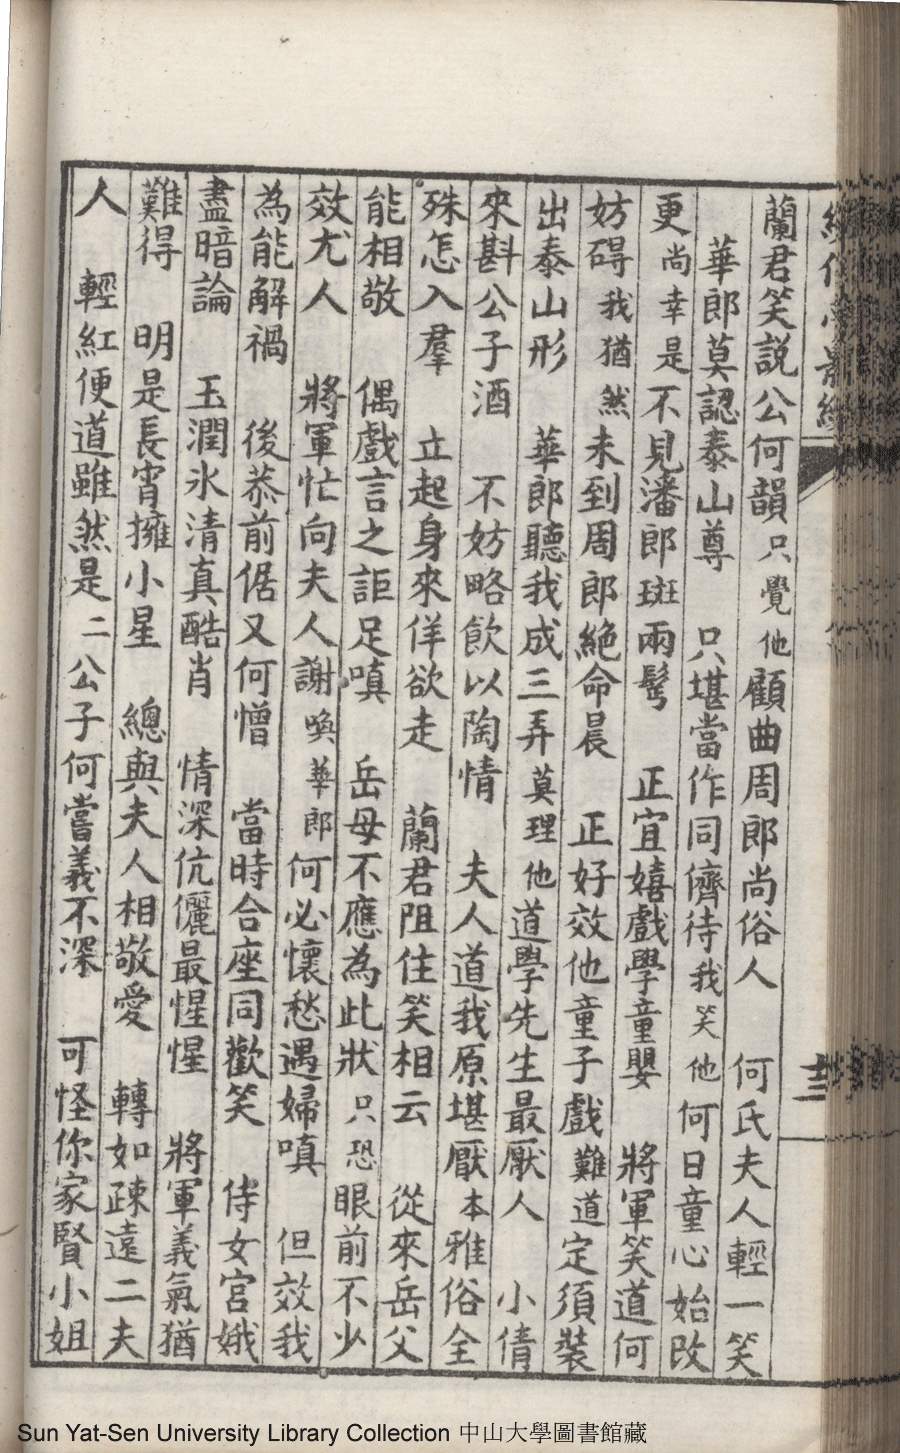 蘭君笑説公何韻 只覺他顧曲周郎尚俗人 何氏夫人輕一笑
華郎莫認泰山尊 只堪當作同儕待 我笑他何日童心始改
更 尚幸是不見潘郎斑兩髩 正宜嬉戲學童嬰 將軍笑道何
妨碍 我猶然未到周郎絶命晨 正好效他童子戲 難道定須裝
出泰山形 華郎聽我成三弄 莫理他道學先生最厭人 小倩
來斟公子酒 不妨略飲以陶情 夫人道我原堪厭 本雅俗全
殊怎入羣 立起身來佯欲走 蘭君阻住笑相云 從來岳父
能相敬 偶戲言之詎足嗔 岳母不應為此狀 只恐眼前不少
效尤人 將軍忙向夫人謝 喚華郎何必懷愁遇婦嗔 但效我
為能解禍 後恭前倨又何憎 當時合座同歡笑 侍女宮娥
盡暗論 玉潤氷清真酷肖 情深伉儷最惺惺 將軍義氣猶
難得 明是長宵擁小星 總與夫人相敬愛 轉如疎遠二夫
人 輕紅便道雖然是 二公子何嘗義不深 可怪你家賢小姐
Sun Yat-Sen University Library Collection 中山大學圖書館藏